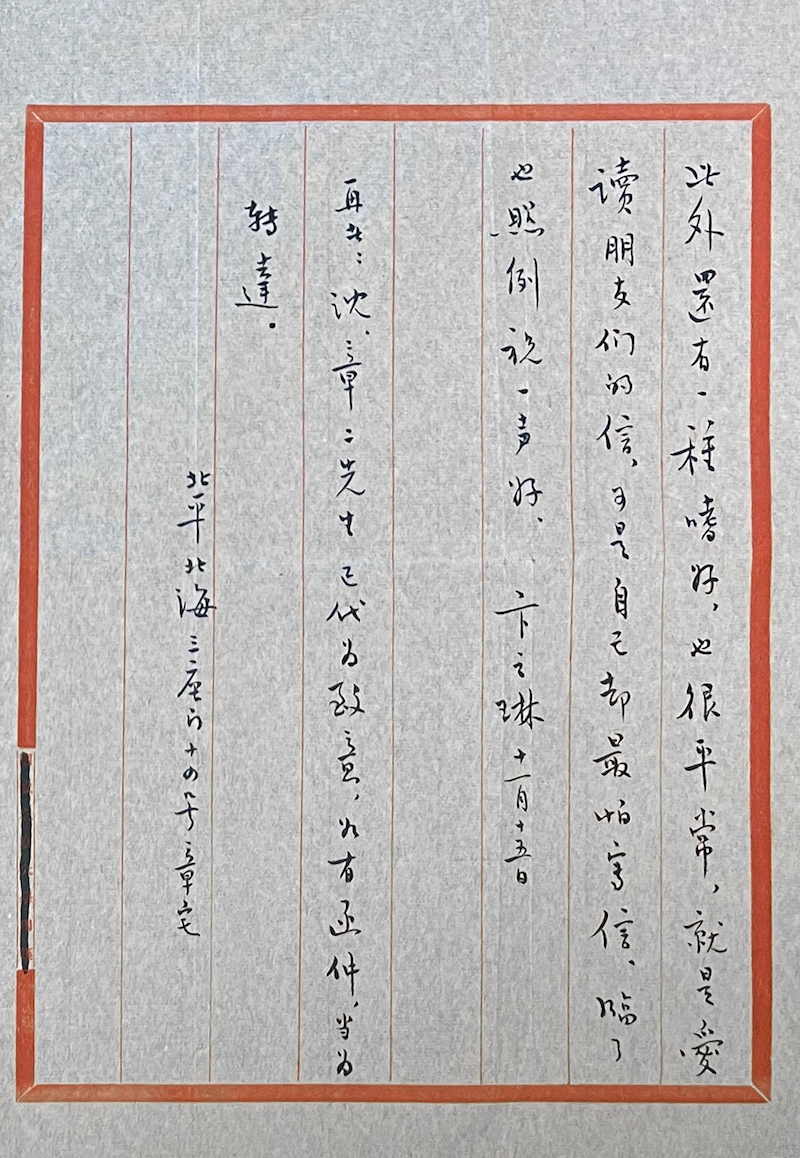 此外還有一種嗜好，也很平常，就是愛
讀朋友们的信、可是自己却最怕寫信、臨了
也照例说一声好、 卞之琳 十一月十五日
再者：沈、章二先生已代为致意，如有函件，当为
轉達。
北平北海三座门十四号章宅